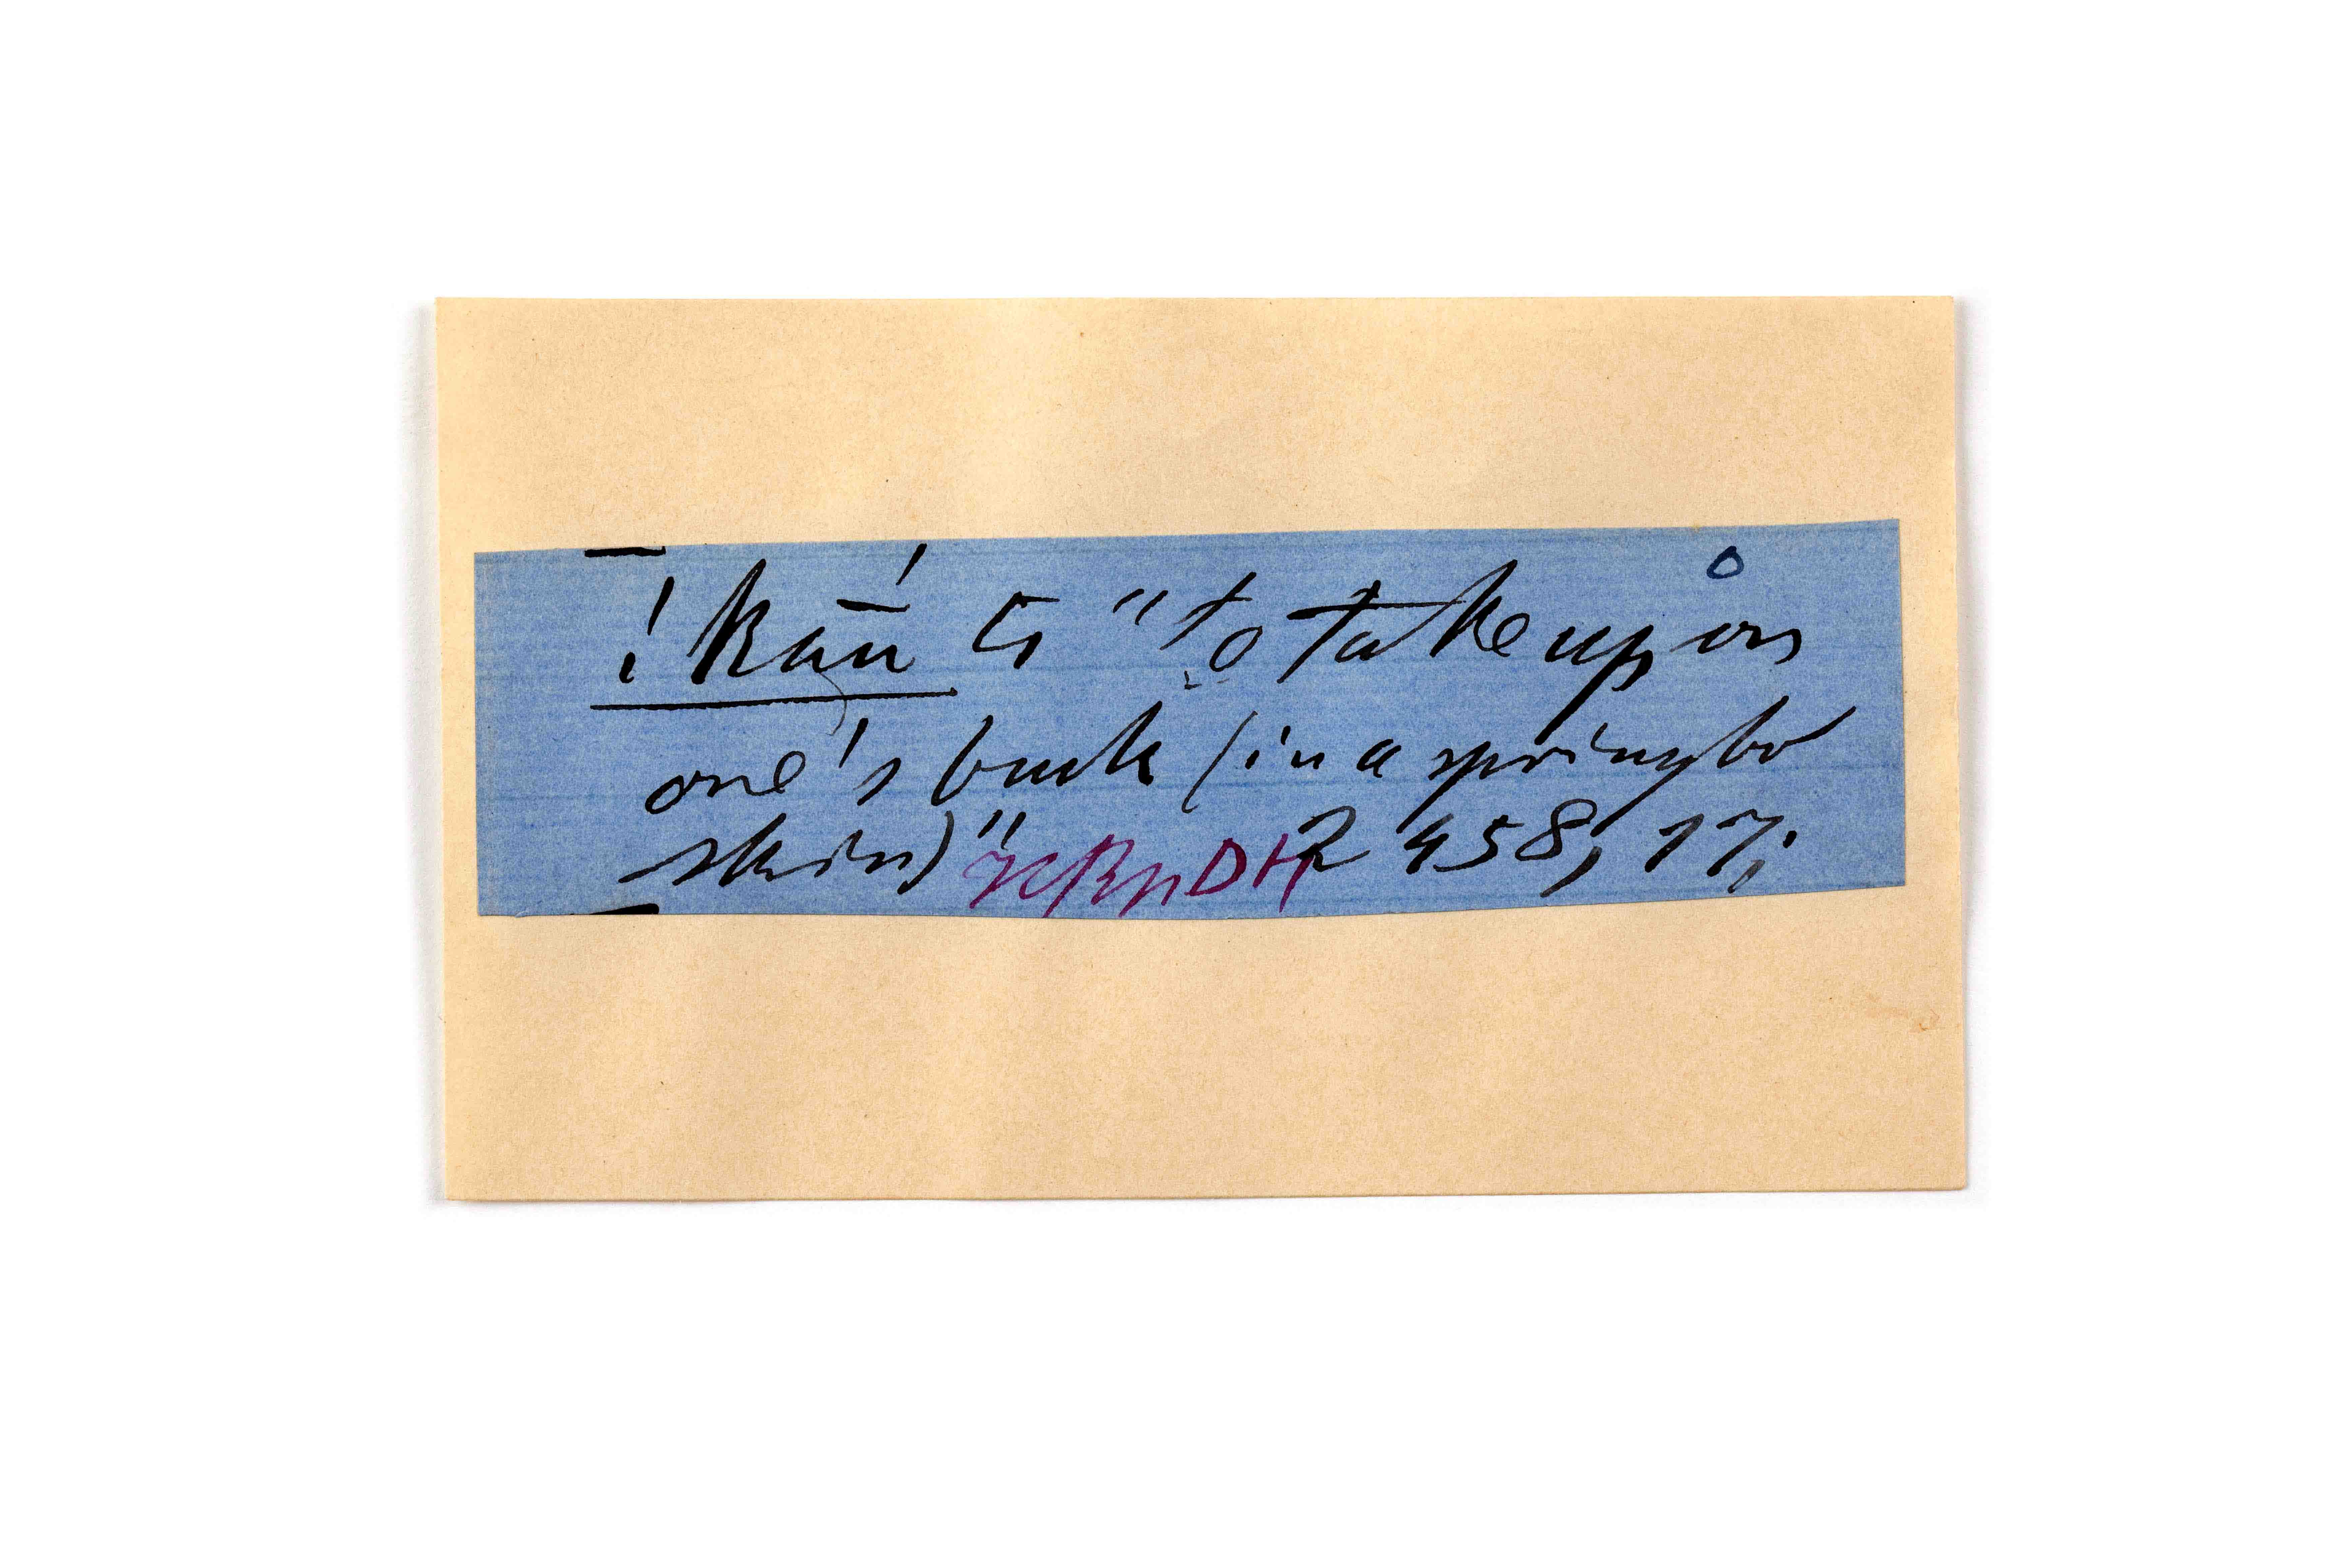 ! kaū́ ts "to take up on
one's back (in a springbo
skin)" 2 458, 17;